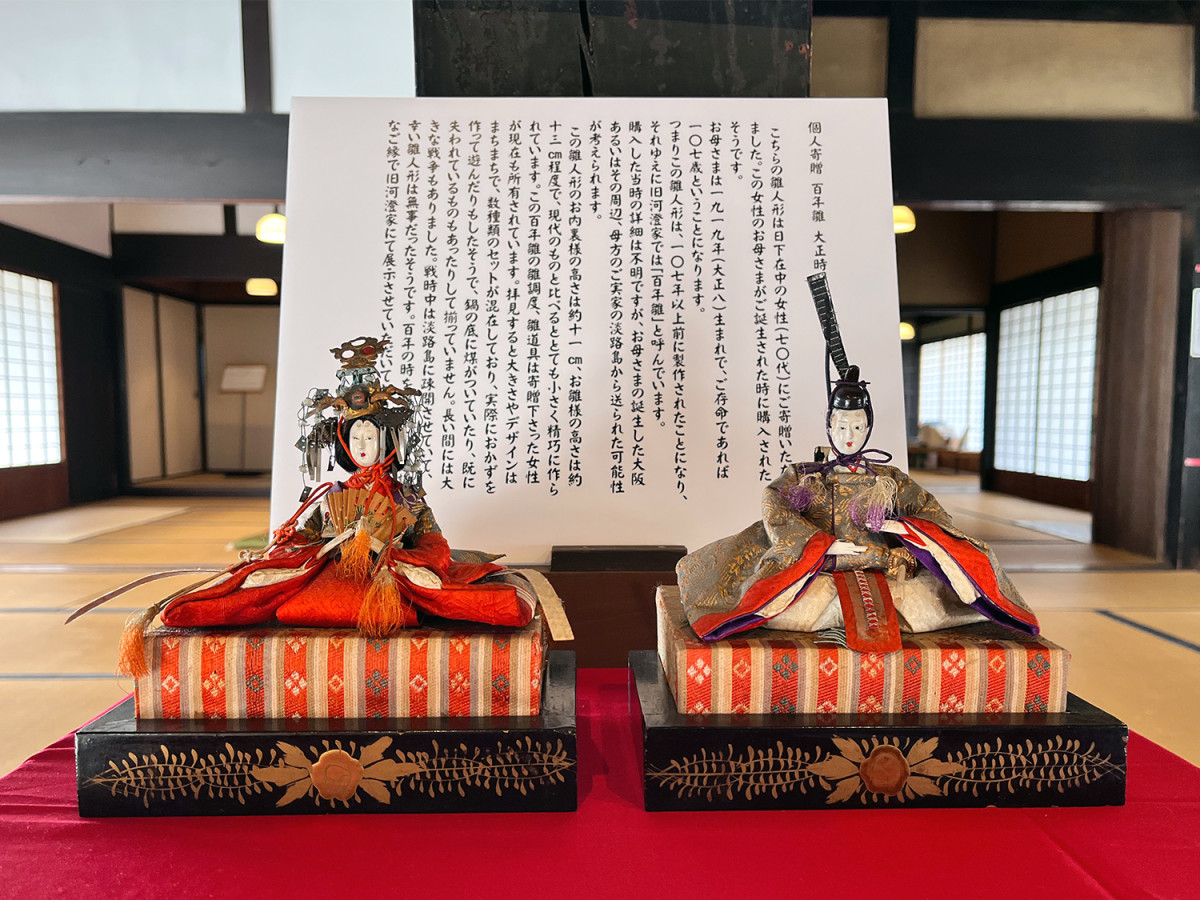 個人寄贈 百年雛 大正時
こちらの雛人形は日下在中の女性(七〇代)にご寄贈いた
ました。この女性のお母さまがご誕生された時に購入された
そうです。
お母さまは一九一九年(大正八)生まれで、ご存命であれば
一〇七歳ということになります。
つまりこの雛人形は、一〇七年以上前に製作されたことになり、
それゆえに旧河澄家では「百年雛」と呼んでいます。
購入した当時の詳細は不明ですが、お母さまの誕生した大阪
あるいはその周辺、母方のご実家の淡路島から送られた可能性
が考えられます。
この雛人形のお内裏様の高さは約十一cm、お雛様の高さは約
十三cm程度で、現代のものと比べるととても小さく精巧に作ら
れています。この百年雛の雛調度、雛道具は寄贈下さった女性
が現在も所有されています。拝見すると大きさやデザインは
まちまちで、数種類のセットが混在しており、実際におかずを
作って遊んだりもしたそうで、鍋の底に煤がついていたり、既に
失われているものもあったりして揃っていません。長い間には大
きな戦争もありました。戦時中は淡路島に疎開させていて、
幸い雛人形は無事だったそうです。百年の時を
なご縁で旧河澄家にて展示させていただいて